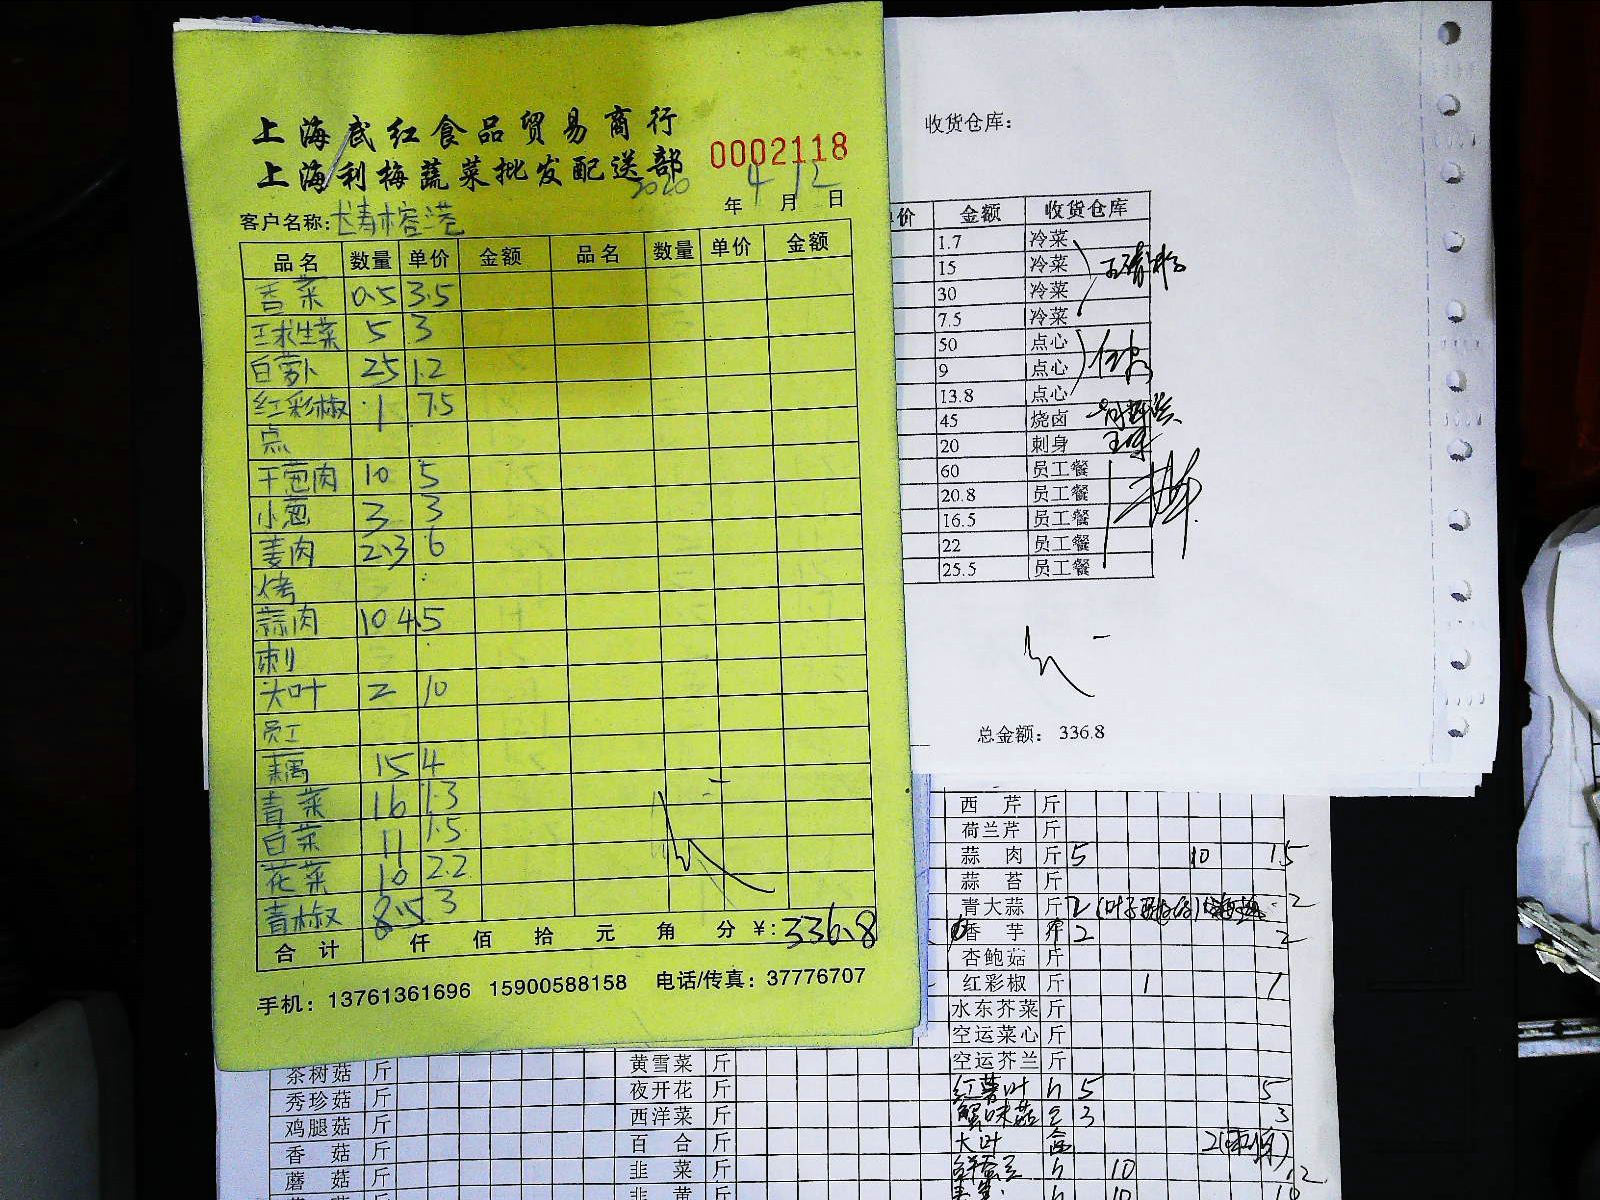 上海武红食品贸易商行
上海利梅蔬菜批发配送部
0002118
2020年4月12日
客户名称:长青榕港
品名 数量 单价 金额 品名 数量 单价 金额
香菜 0.5 3.5
玉球生菜 5 3
白萝卜 25 1.2
红彩椒 1 7.5
点
干葱肉 10 5
小葱 3 3
姜肉 2.3 6
烤
蒜肉 10 4.5
刺
大叶 2 10
员工
藕 15 4
青菜 16 1.3
白菜 11 1.5
花菜 10 2.2
青椒 8.5 3
合计 仟 佰 拾 元 角 分 ¥:336.8
手机: 13761361696 15900588158 电话/传真: 37776707
收货仓库:
价 金额 收货仓库
1.7 冷菜
15 冷菜
30 冷菜
7.5 冷菜
50 点心
9 点心
13.8 点心
45 烧卤
20 刺身
60 员工餐
20.8 员工餐
16.5 员工餐
22 员工餐
25.5 员工餐
总金额: 336.8
西芹 斤
荷兰芹 斤
蒜肉 斤 5 10 15
蒜苔 斤
青大蒜 斤 2 2
香芋 斤 2 2
杏鲍菇 斤
红彩椒 斤 1 1
水东芥菜 斤
空运菜心 斤
茶树菇 斤 黄雪菜 斤 空运芥兰 斤
秀珍菇 斤 夜开花 斤 红薯叶 5 5
鸡腿菇 斤 西洋菜 斤 蟹味菇 3 3
香菇 斤 百合 斤 大叶 盒 2
蘑菇 斤 韭菜 斤 10 12
韭黄 斤 10 10